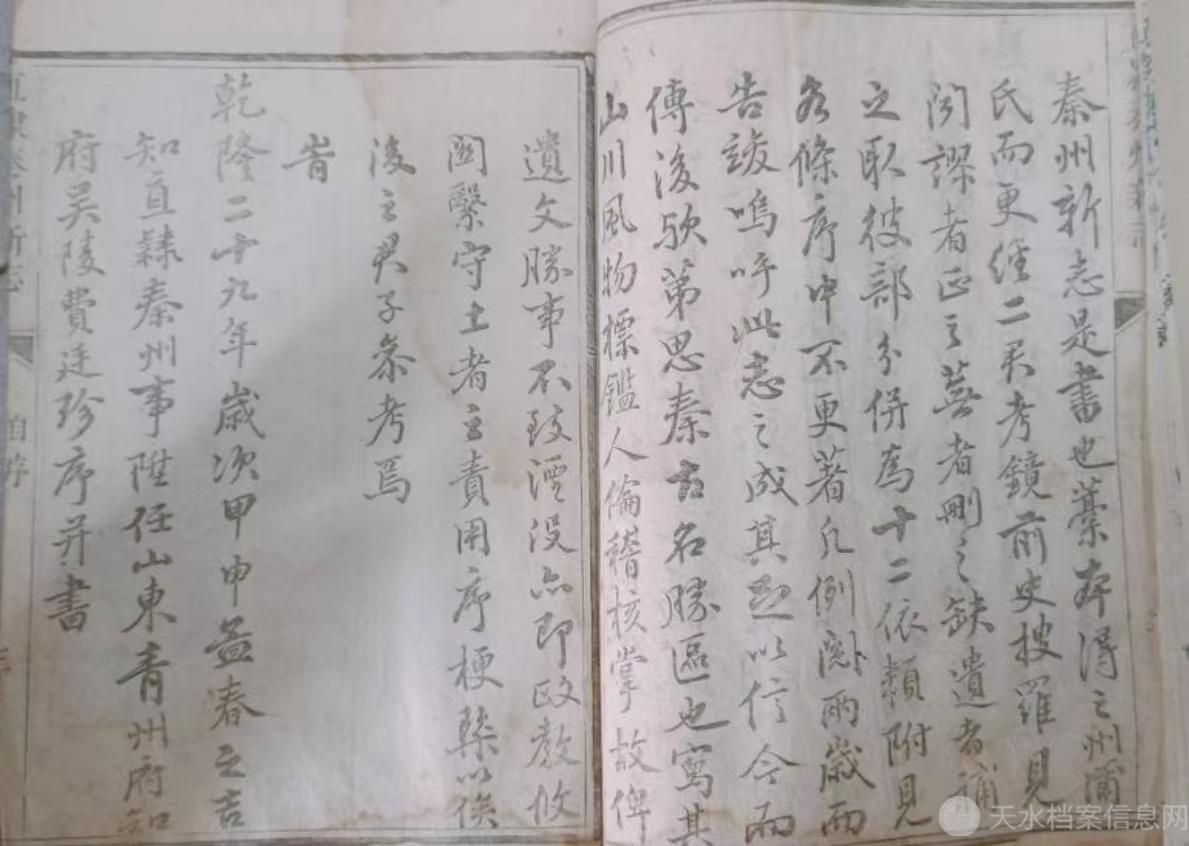 秦州新志是書也藁本得之州蒲
氏而更經二君考鏡前史搜羅見
聞謬者正之蕪者刪之缺遺者補
之取彼部分併為十二依類附見
各條序中不更著凡例閱兩歲而
告竣嗚呼此志之成其足以信今而
傳後歟第思秦古名勝區也寫其
山川風物標鑑人倫稽核掌故俾
遺文勝事不致湮没亦即政教攸
關繫守土者之責用序梗槩以俟
後之君子叅考焉
旹
乾隆二十九年歲次甲申孟春之吉
知直隸秦州事陞任山東青州府知
府吴陵費廷珍序并書
直隸秦州新志
自序
天水档案信息网